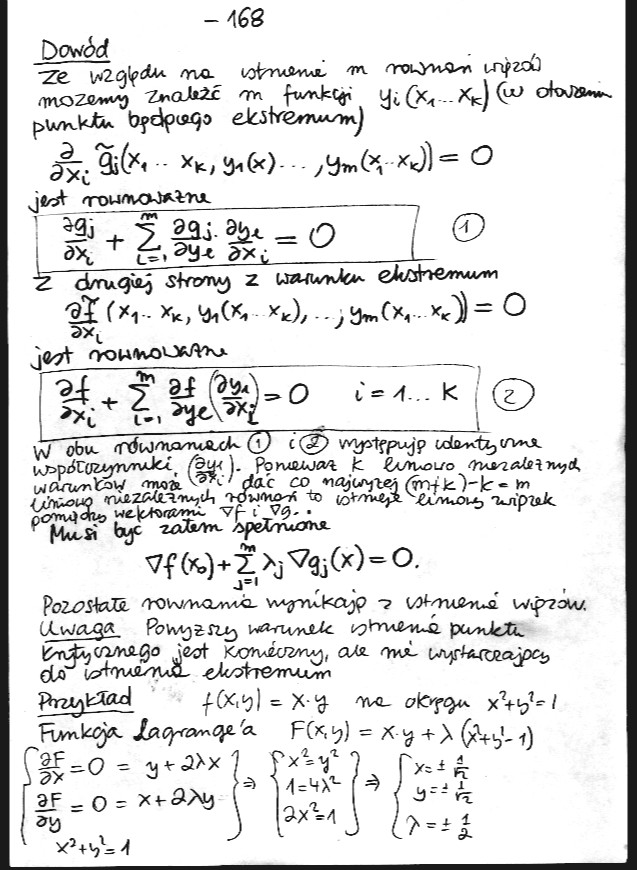 – 168
Dowód
Ze względu na istnienie m równań więzów
możemy znaleźć m funkcji y_i(x_1...x_k) (w otoczeniu
punktu będącego ekstremum)
∂/∂x_i g̃_j(x_1...x_k, y_1(x)...,y_m(x_1...x_k)) = 0
jest równoważne
∂g_j/∂x_i + Σ_{l=1}^{m} ∂g_j/∂y_l ∂y_l/∂x_i = 0 ①
Z drugiej strony z warunku ekstremum
∂f̃/∂x_i (x_1..x_k, y_1(x_1...x_k),...,y_m(x_1...x_k)) = 0
jest równoważne
∂f/∂x_i + Σ_{l=1}^{m} ∂f/∂y_l (∂y_l/∂x_i) = 0 i = 1...k ②
W obu równaniach ① i ② występują identyczne
współczynniki (∂y_l/∂x_i). Ponieważ k liniowo niezależnych
warunków może dać co najwyżej (m+k)-k=m
liniowo niezależnych równań to istnieje liniowy związek
pomiędzy wektorami ∇f i ∇g_j.
Musi być zatem spełnione
∇f(x_0) + Σ_{j=1}^{m} λ_j ∇g_j(x) = 0.
Pozostałe równania wynikają z istnienia więzów.
Uwaga Powyższy warunek istnienia punktu
krytycznego jest konieczny, ale nie wystarczający
do istnienia ekstremum
Przykład f(x,y) = x·y na okręgu x²+y²=1
Funkcja Lagrange'a F(x,y) = x·y + λ(x²+y²-1)
{ ∂F/∂x = 0 = y + 2λx } ⇒ { x²=y² } ⇒ { x = ± 1/√2
{ ∂F/∂y = 0 = x + 2λy } { 1=4λ² } { y = ± 1/√2
x²+y²=1 { 2x²=1 } { λ = ± 1/2